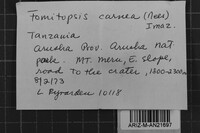 Fomitopsis carnea (Nees)
Imaz.
Tanzania
Arusha Prov. Arusha Nat
park. MT. Meru, E. slope,
road to the crater, 1500-2300m
8/2/73
L Ryvarden 10118
ARIZ-M-AN21697